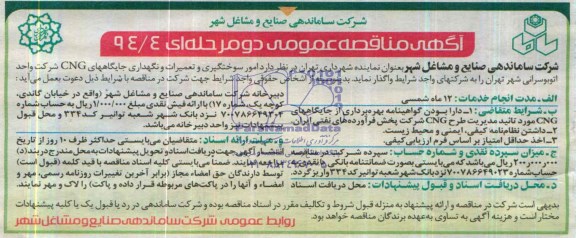 شرکت ساماندهی صنایع و مشاغل شهر
آگهی مناقصه عمومی دو مرحله‌ای ۹۴/۴
شرکت ساماندهی صنایع و مشاغل شهر بعنوان نماینده شهرداری تهران در نظر دارد امور سوختگیری و تعمیرات و نگهداری جایگاههای CNG شرکت واحد
اتوبوسرانی شهر تهران را به شرکتهای واجد شرایط واگذار نماید. اشخاص حقوقی واجد شرایط جهت شرکت در مناقصه با شرایط ذیل دعوت بعمل می‌آید:
الف- مدت انجام خدمات: ۱۲ ماه شمسی
ب- شرایط متقاضی: ۱- دارا بودن گواهینامه بهره‌برداری از جایگاههای
CNG مورد تائید مدیریت طرح CNG شرکت پخش فرآورده‌های نفتی ایران.
۲- داشتن نظام‌نامه کیفی، ایمنی و محیط زیست.
۳- اخذ حداقل امتیاز بر اساس فرم ارزیابی کیفی.
ج- میزان سپرده نقدی و شماره حساب: سپرده شرکت
ریال می‌باشد که می‌بایستی بصورت ضمانتنامه بانکی یا
حساب شماره ۷۰۰۷۸۶۶۴۹۰۲۳ نزد بانک شهر شعبه توانیر کد ۳۳۴ واریز گردد.
د- محل دریافت اسناد و قبول پیشنهادات: محل دریافت اسناد
دبیرخانه شرکت ساماندهی صنایع و مشاغل شهر (واقع در خیابان گاندی،
کوچه یک، شماره ۱۷) با ارائه فیش نقدی مبلغ ۱/۰۰۰/۰۰۰ ریال به حساب شماره
نزد بانک شهر شعبه توانیر کد ۳۳۴ و محل قبول
واحد دبیرخانه می‌باشد.
مهلت ارائه اسناد: متقاضیان می‌بایستی حداکثر ظرف ۱۰ روز از تاریخ
انتشار آگهی جهت دریافت اسناد و تحویل پیشنهادات به محل مندرج در بند (د)
ضمناً می‌بایستی کلیه اسناد مناقصه با قید کلمه (قبول است)
توسط دارندگان حق امضاء مجاز (برابر آخرین تغییرات روزنامه رسمی، مهر و
امضاء و آنها را در پاکت‌های مربوطه قرار داده و پاکت) را لاک و مهر نمایند.
بدیهی است شرکت در مناقصه و ارائه پیشنهاد به منزله قبول شروط و تکالیف مقرر در اسناد مناقصه بوده و شرکت ساماندهی در رد یا قبول یک یا کلیه پیشنهادات
مختار است و هزینه آگهی به تساوی به عهده برندگان مناقصه خواهد بود.
روابط عمومی شرکت ساماندهی صنایع و مشاغل شهر